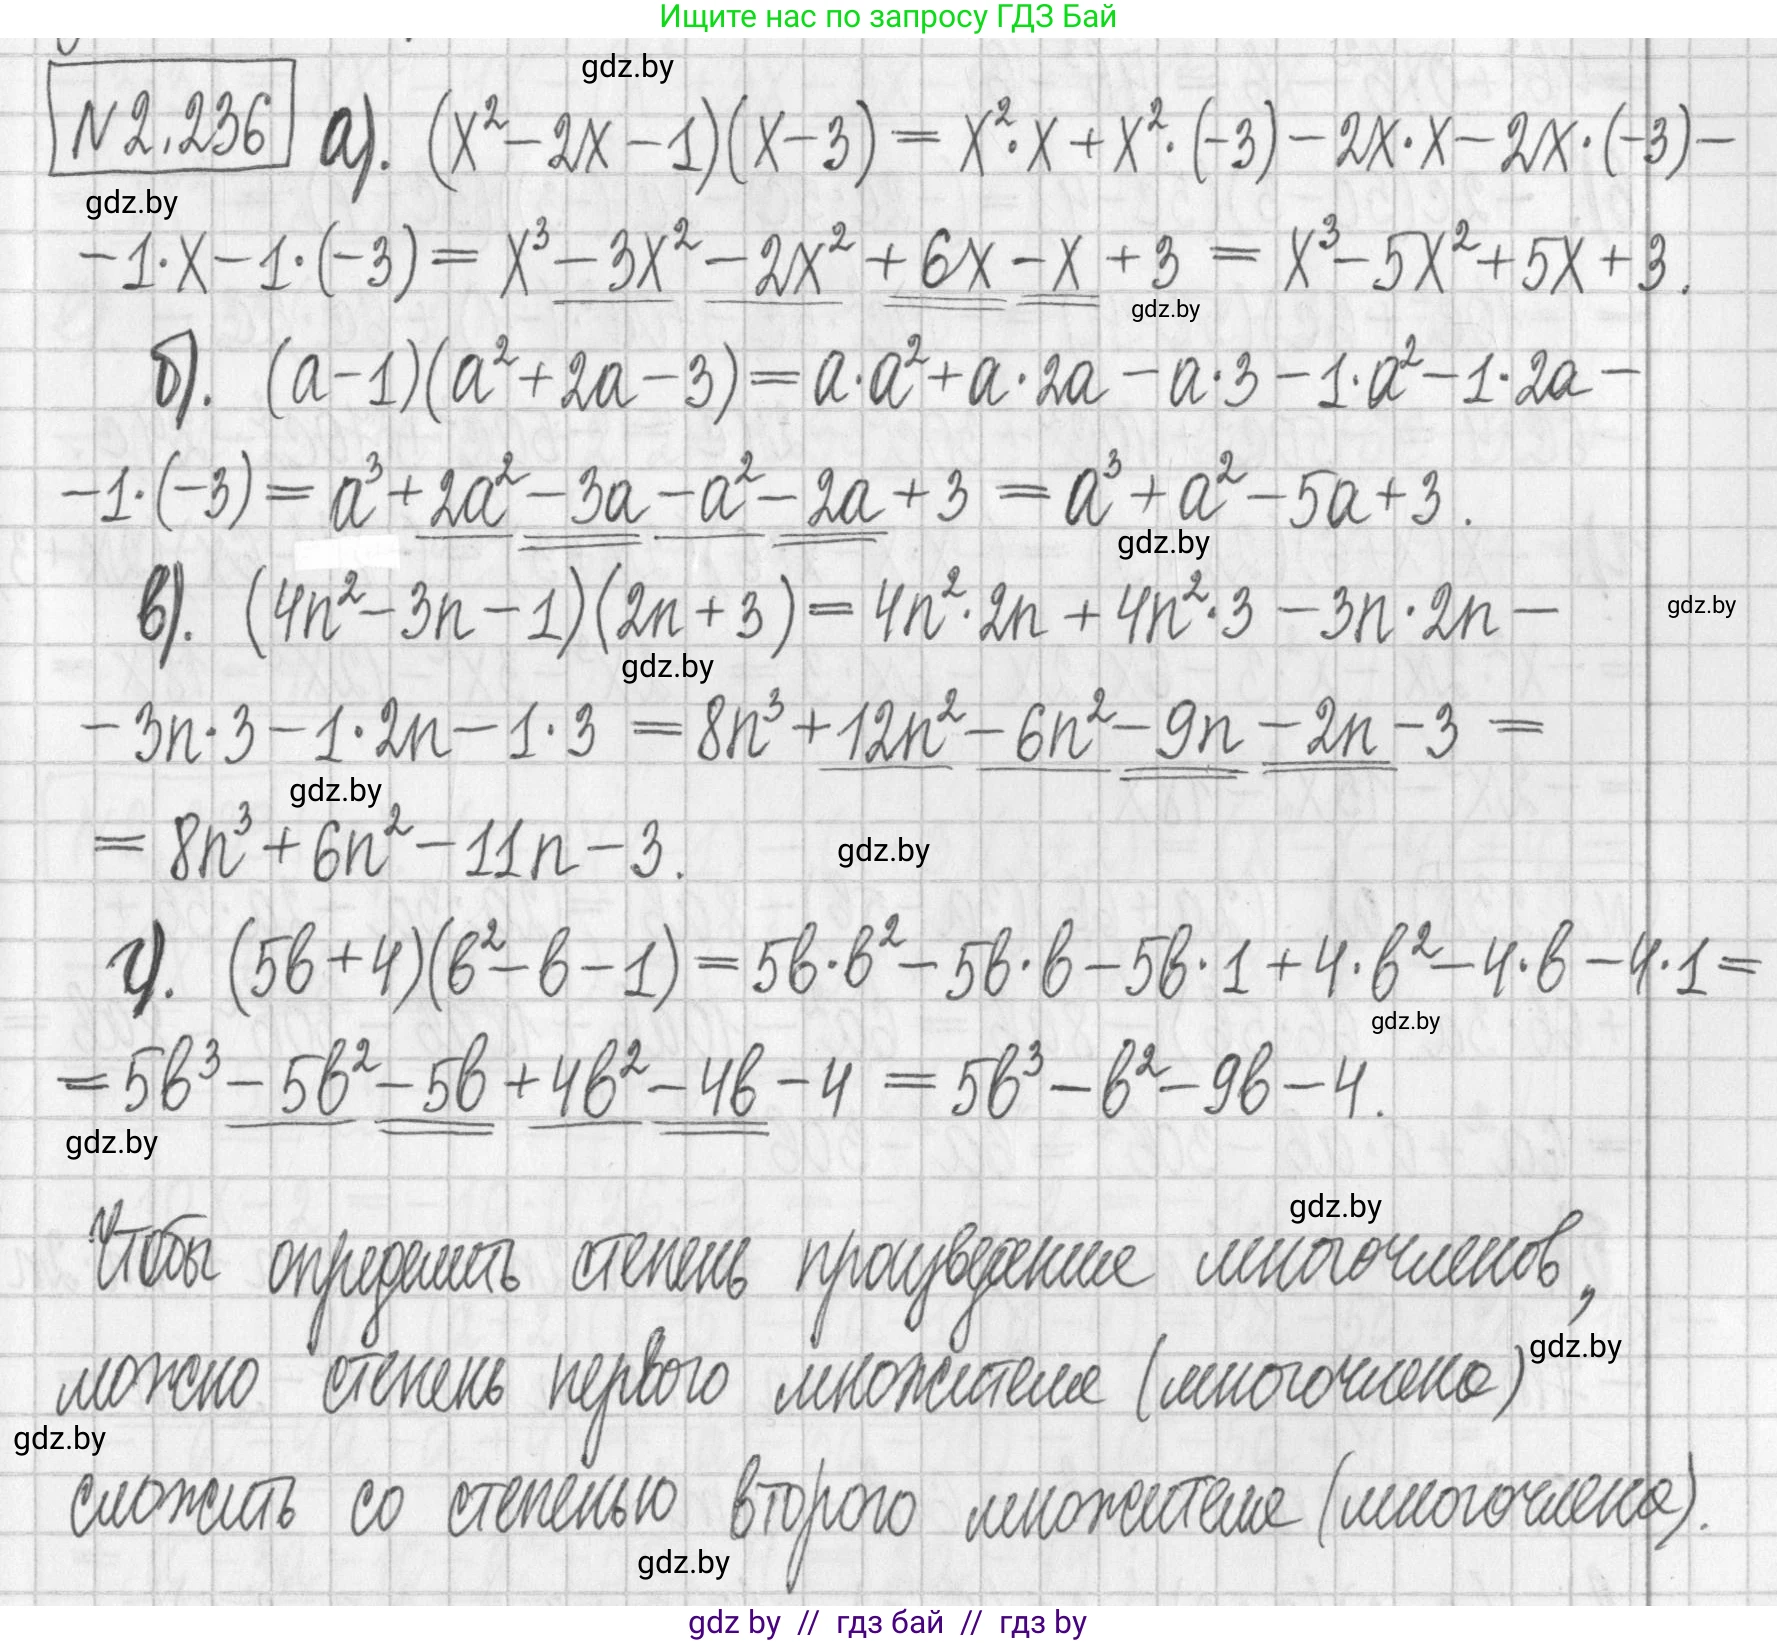 Ищите нас по запросу ГДЗ Бай
gdz.by
N 2.236 а). (x² − 2x − 1)(x − 3) = x²·x + x²·(−3) − 2x·x − 2x·(−3) −
gdz.by
− 1·x − 1·(−3) = x³ − 3x² − 2x² + 6x − x + 3 = x³ − 5x² + 5x + 3.
gdz.by
б). (a − 1)(a² + 2a − 3) = a·a² + a·2a − a·3 − 1·a² − 1·2a −
− 1·(−3) = a³ + 2a² − 3a − a² − 2a + 3 = a³ + a² − 5a + 3.
gdz.by
в). (4n² − 3n − 1)(2n + 3) = 4n²·2n + 4n²·3 − 3n·2n −
gdz.by
gdz.by
− 3n·3 − 1·2n − 1·3 = 8n³ + 12n² − 6n² − 9n − 2n − 3 =
gdz.by
= 8n³ + 6n² − 11n − 3.
gdz.by
г). (5в + 4)(в² − в − 1) = 5в·в² − 5в·в − 5в·1 + 4·в² − 4·в − 4·1 =
gdz.by
= 5в³ − 5в² − 5в + 4в² − 4в − 4 = 5в³ − в² − 9в − 4.
gdz.by
gdz.by
Чтобы определить степень произведения многочленов,
gdz.by
можно степень первого множителя (многочлена)
gdz.by
сложить со степенью второго множителя (многочлена).
gdz.by
gdz by // гдз бай // гдз by